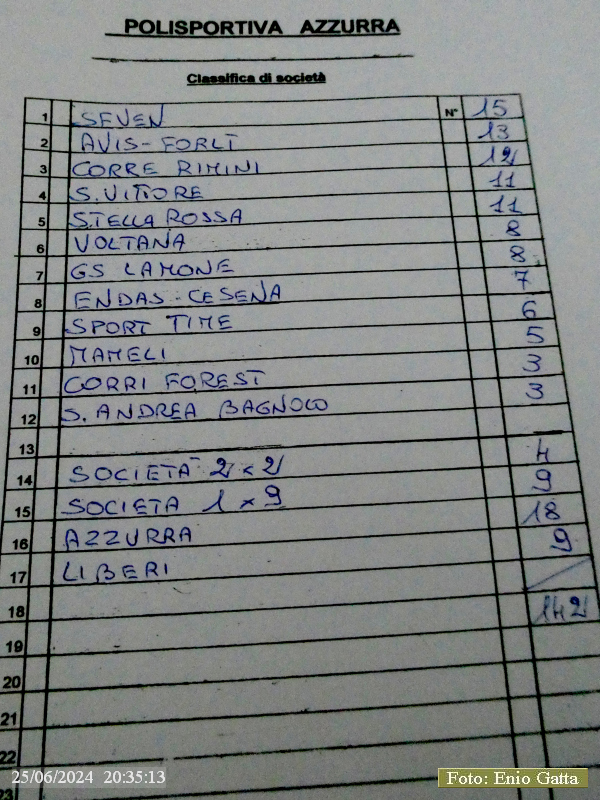 POLISPORTIVA AZZURRA
Classifica di società
1 SEVEN N° 15
2 AVIS-FORLI 13
3 CORRE RIMINI 12
4 S. VITTORE 11
5 STELLA ROSSA 11
6 VOLTANA 8
7 GS LAMONE 8
8 ENDAS-CESENA 7
9 SPORT TIME 6
10 MAMELI 5
11 CORRI FOREST 3
12 S. ANDREA BAGNOLO 3
13
14 SOCIETA' 2 x 2 4
15 SOCIETA 1 x 9 9
16 AZZURRA 18
17 LIBERI 9
18
19 142
20
21
22
23
25/06/2024 20:35:13
Foto: Enio Gatta